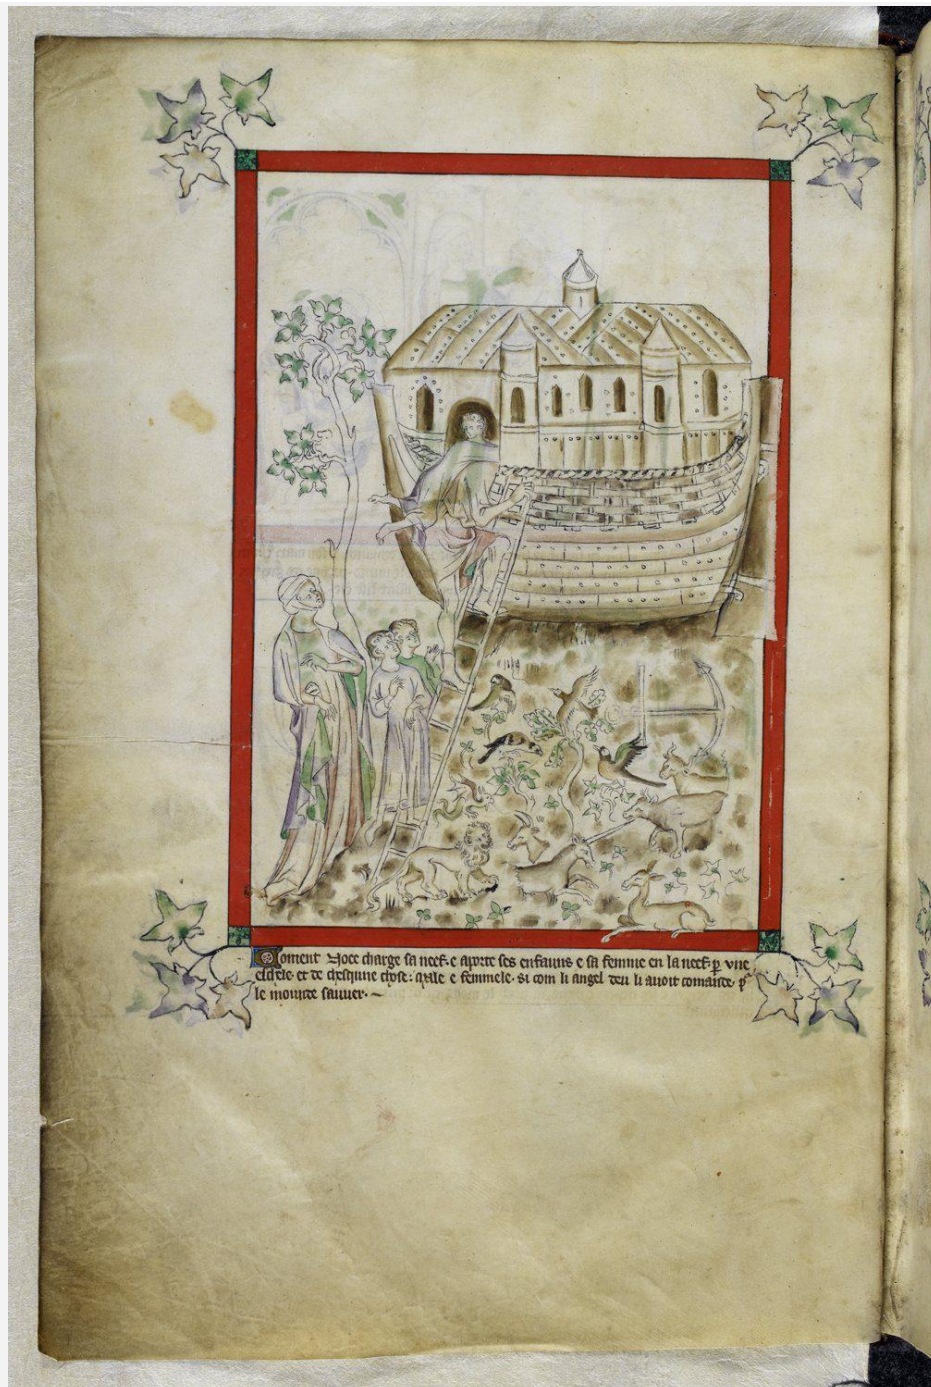 Coment Noee charge sa neef· e aporte ses enfauns e sa femme en la neef· p̲ vne
eschele· et de chescune chose: Male e femmele· si com li angel deu li auoit comaunde· pᵉ
le mounde sauuer·~